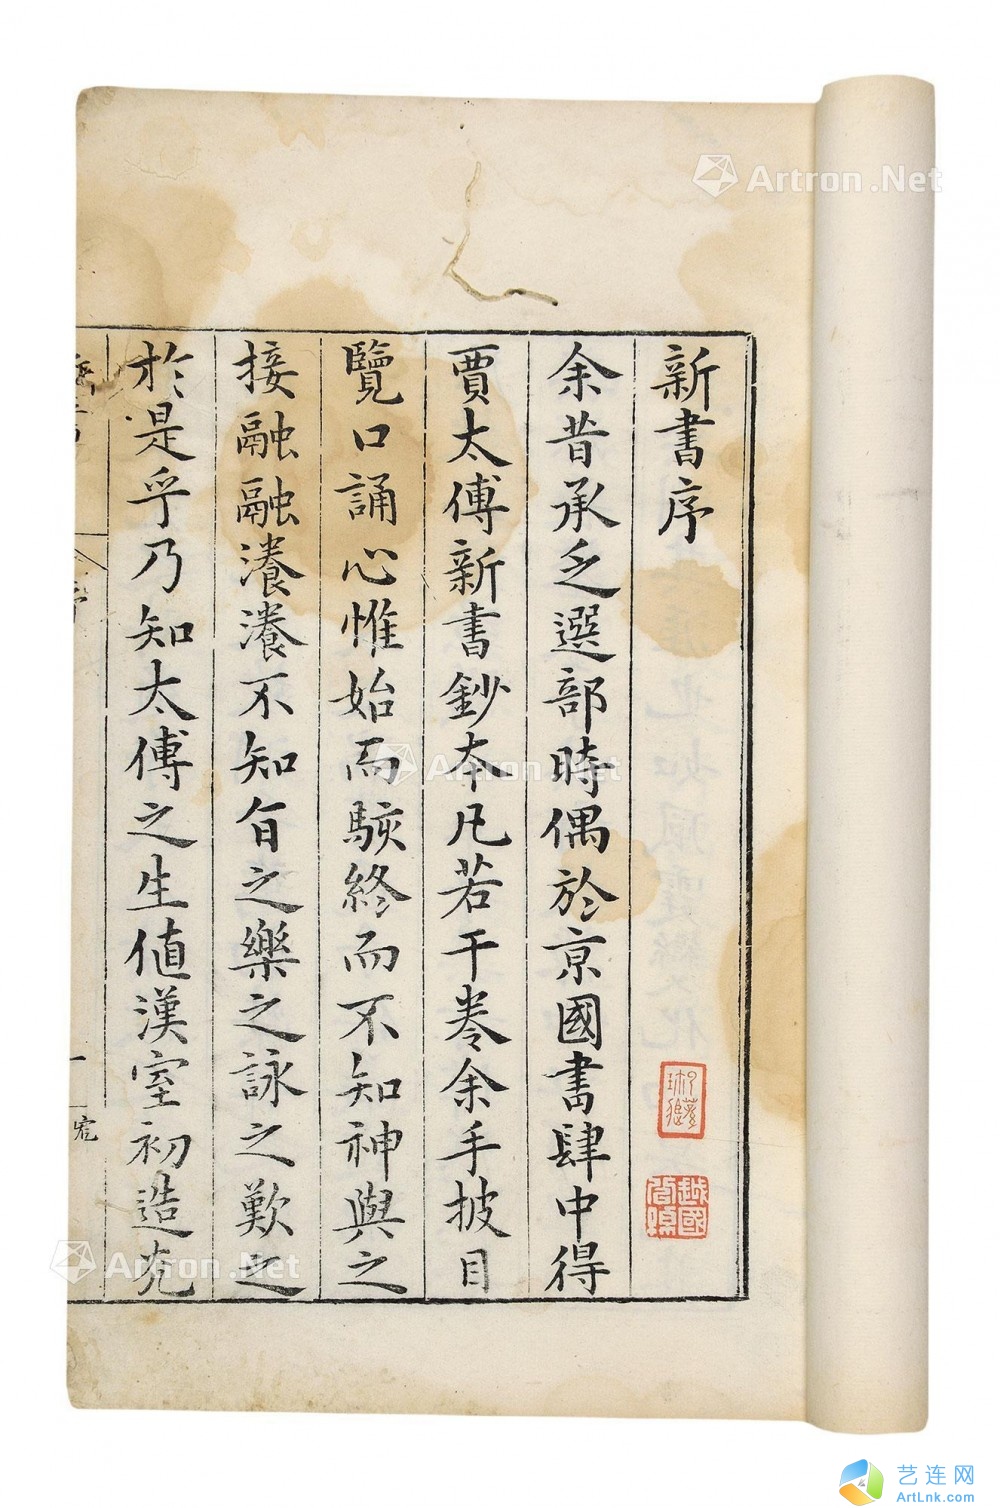 新書序
余昔承乏選部時偶於亰國書肆中得
賈太傅新書鈔本凡若干卷余手披目
覽口誦心惟始而駭終而不知神與之
接融融瀁瀁不知旨之樂之詠之歎之
於是乎乃知太傅之生值漢室初造光
一
Artron.Net
Artron.Net
Artron.Net
艺连网
ArtLnk.com